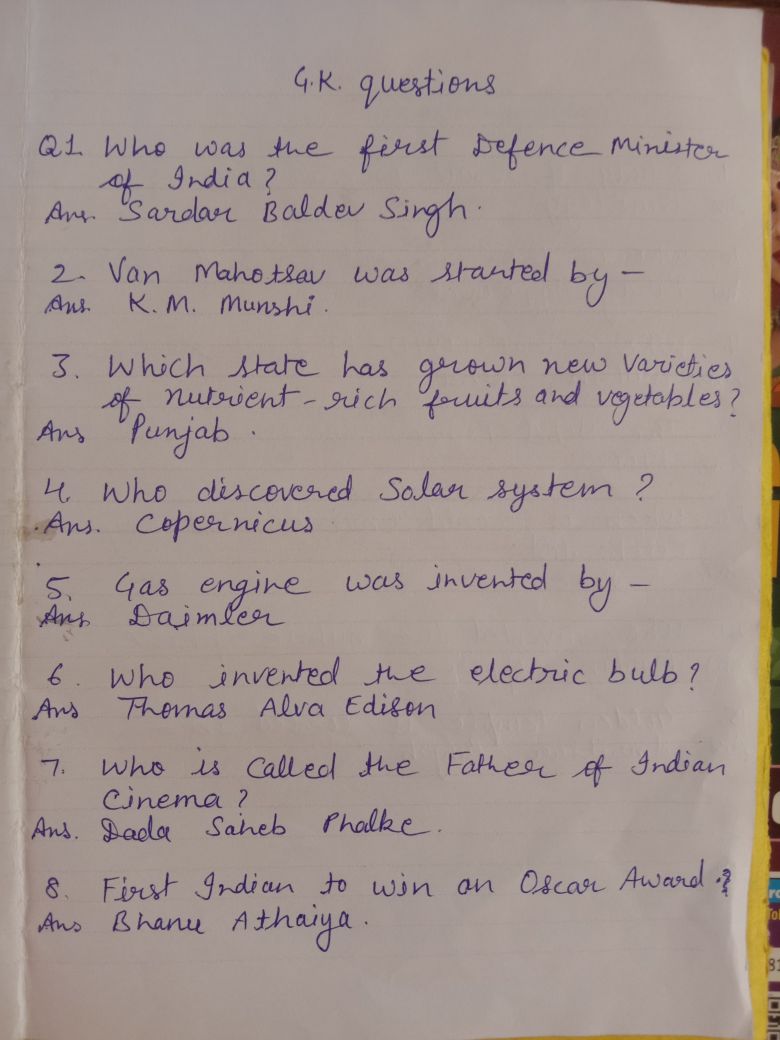 G.K. questions
Q1 Who was the first Defence Minister
of India?
Ans. Sardar Baldev Singh.
2. Van Mahotsav was started by -
Ans. K.M. Munshi.
3. Which state has grown new Varieties
of nutrient-rich fruits and vegetables?
Ans Punjab.
4. Who discovered Solar system?
Ans. Copernicus
5. Gas engine was invented by -
Ans Daimler
6. Who invented the electric bulb?
Ans Thomas Alva Edison
7. Who is Called the Father of Indian
Cinema?
Ans. Dada Saheb Phalke.
8. First Indian to win an Oscar Award?
Ans Bhanu Athaiya.